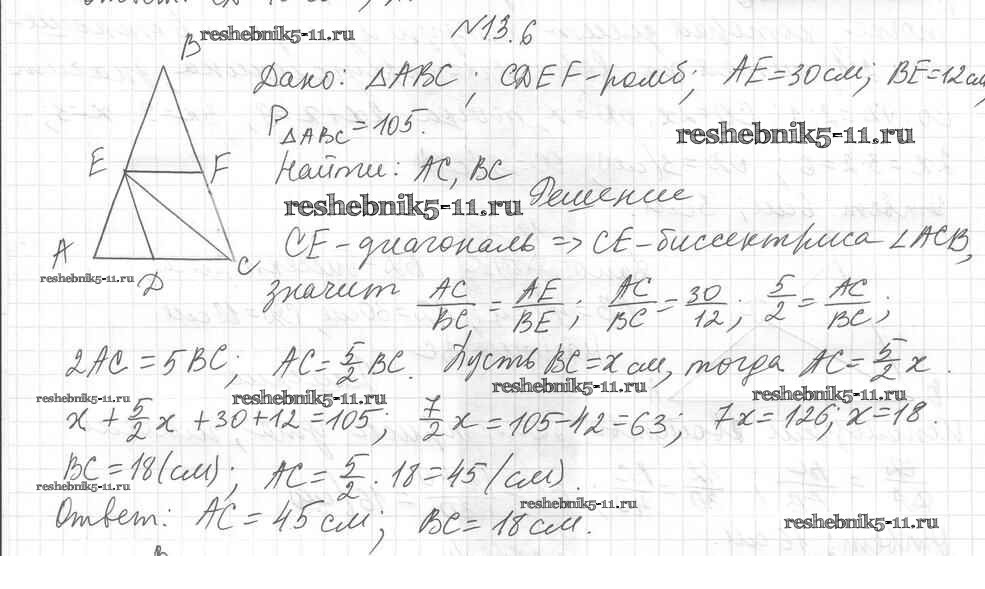 reshebnik5-11.ru
№13.6
B
Дано: △ABC; CDEF-ромб; AE=30см; BE=12см,
P△ABC=105.
reshebnik5-11.ru
E F
Найти: AC, BC
reshebnik5-11.ru
Решение
CE-диагональ => CE-биссектриса ∠ACB,
A D C
reshebnik5-11.ru
значит AC/BC = AE/BE; AC/BC = 30/12; 5/2 = AC/BC;
2AC=5BC; AC=5/2 BC. Пусть BC=x см, тогда AC=5/2 x.
reshebnik5-11.ru reshebnik5-11.ru reshebnik5-11.ru reshebnik5-11.ru
x + 5/2 x + 30+12=105; 7/2 x = 105-42=63; 7x=126; x=18.
BC=18(см); AC= 5/2 · 18=45 (см).
reshebnik5-11.ru reshebnik5-11.ru
Ответ: AC=45см; BC=18см.
reshebnik5-11.ru